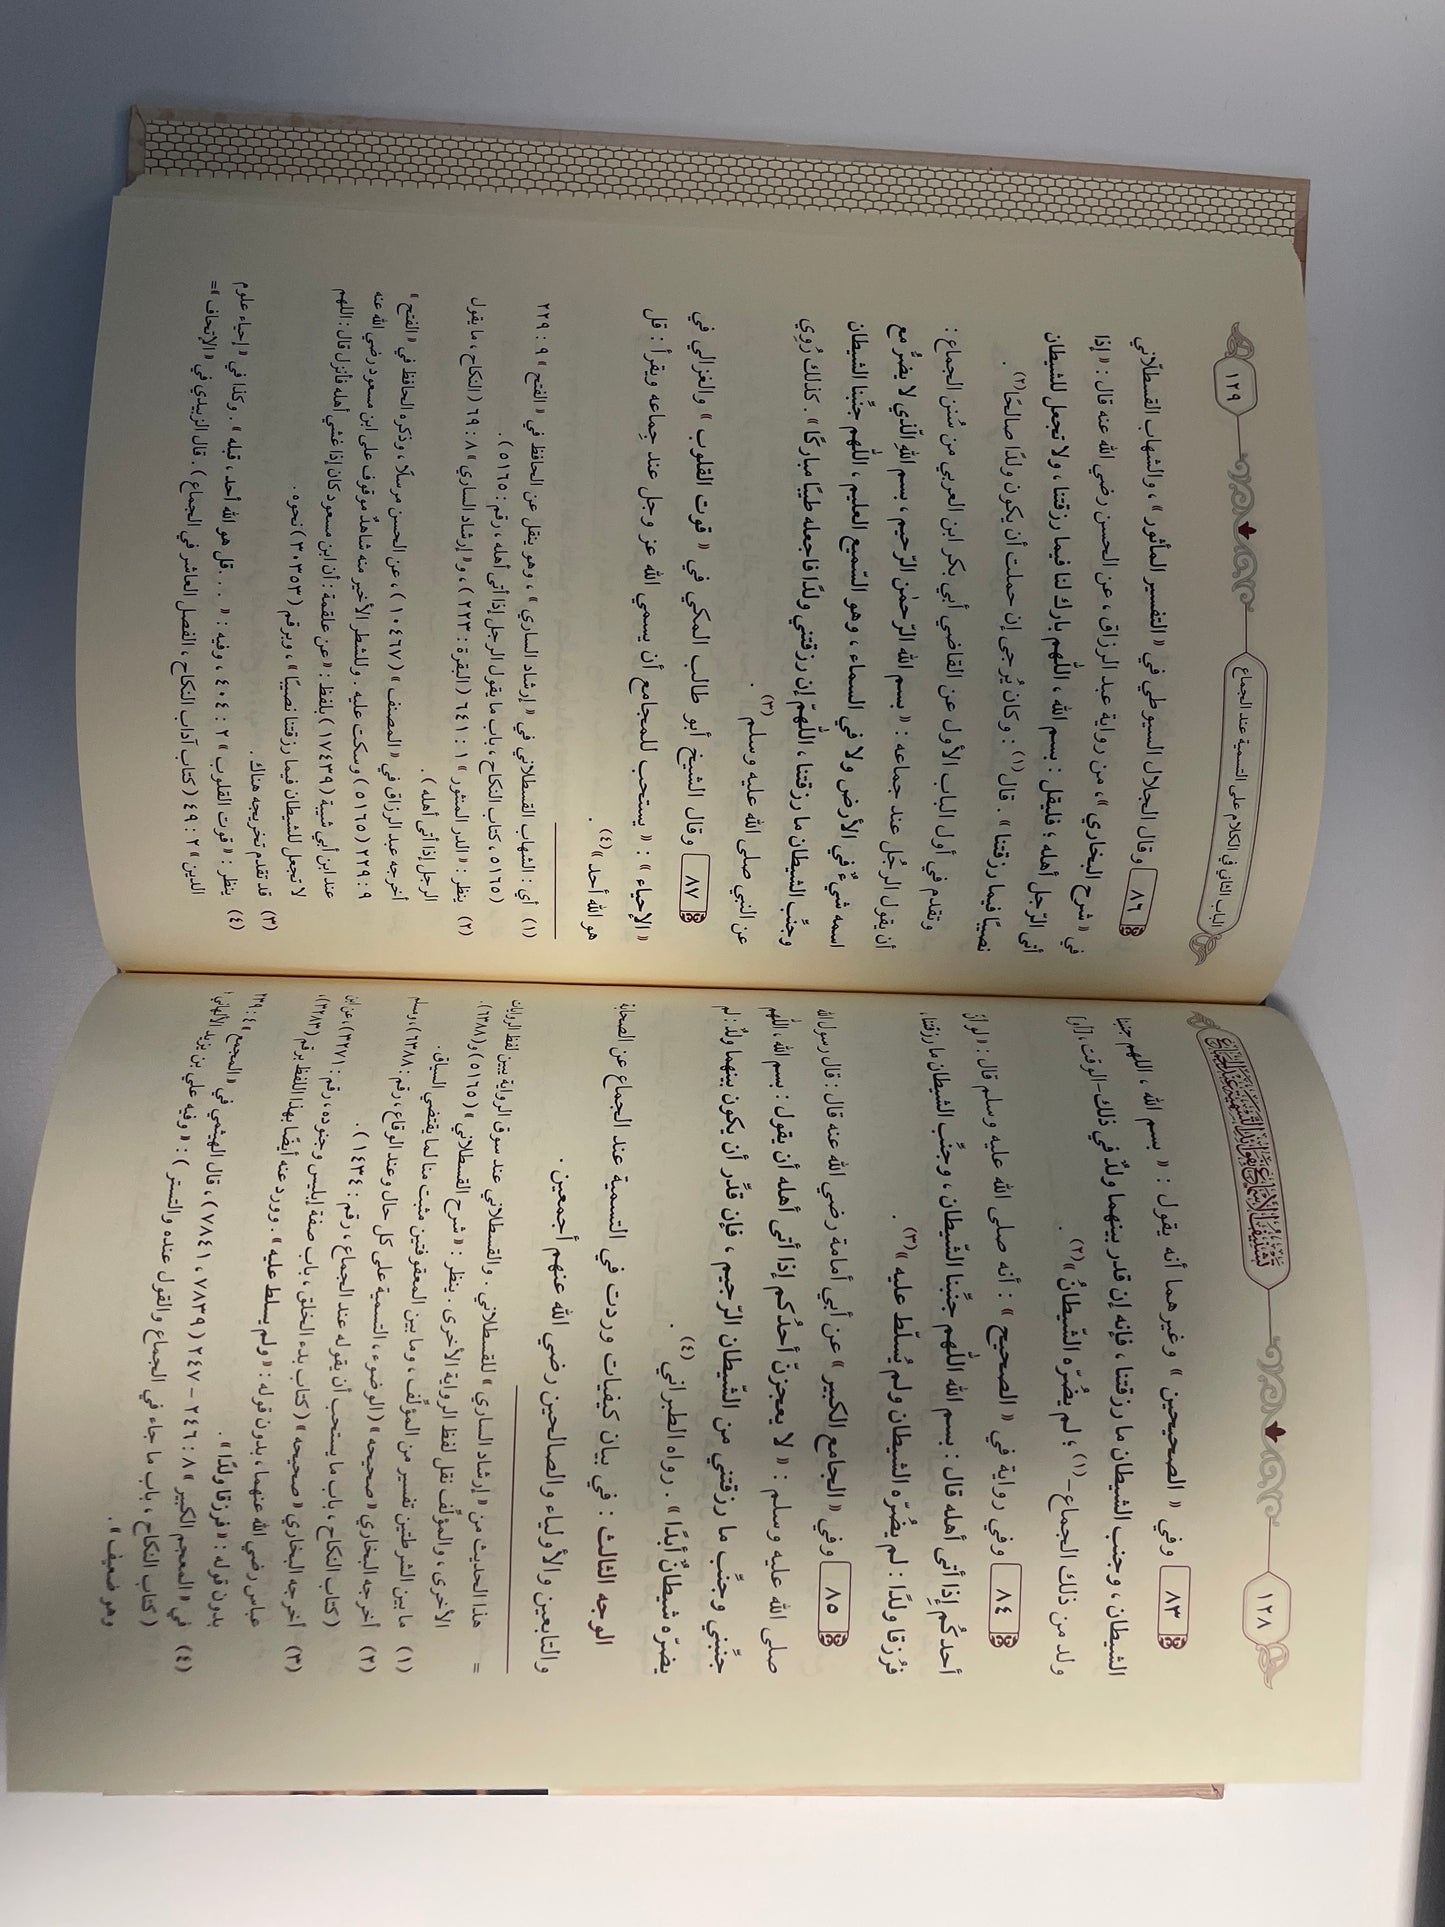 ١٢٨
تشنيف الأسماع بفوائد التسمية عند الجماع
٨٣ وفي « الصحيحين » وغيرهما أنه يقول : « بسم الله ، اللهم جنبنا
الشيطان ، وجنب الشيطان ما رزقتنا ، فإنه إن قدر بينهما ولدٌ في ذلك - الوقت ، [أو]
ولد من ذلك الجماع - (١) ؛ لم يضُرّه الشّيطانُ » (٢) .
٨٤ وفي رواية في « الصحيح » : أنه صلى الله عليه وسلم قال : « لو أنّ
أحدكُم إذا أتى أهله قال : بسم الله اللّٰهم جنّبنا الشّيطان ، وجنّب الشيطان ما رزقتنا،
فرُزقا ولدًا : لم يضُرّه الشيطان ولم يُسلّط عليه » (٣) .
٨٥ وفي « الجامع الكبير » عن أبي أمامة رضي الله عنه قال : قال رسول الله
صلى الله عليه وسلم : « لا يعجزنّ أحدُكم إذا أتى أهله أن يقول : بسم الله ، اللّٰهم
جنّبني وجنّب ما رزقتني من الشّيطان الرّجيم ، فإن قدِّر أن يكون بينهما ولدٌ : لم
يضرّه شيطانٌ أبدًا » . رواه الطبراني (٤) .
الوجه الثالث : في بيان كيفيات وردت في التسمية عند الجماع عن الصحابة
والتابعين والأولياء والصالحين رضي الله عنهم أجمعين .
= هذا الحديث من « إرشاد الساري » للقسطلاني . والقسطلاني عند سوق الرواية بين لفظ الروايات
الأخرى ، والمؤلِّف نقل لفظ الرواية الأخرى . ينظر : « شرح القسطلاني » (٥١٦٥) و(٦٣٨٨).
(١) ما بين الشرطتين تفسير من المؤلِّف ، وما بين المعقوفتين مثبت منا لما يقتضي السياق.
(٢) أخرجه البخاري « صحيحه » (الوضوء ، التسمية على كل حال وعند الوقاع ، رقم : ٦٣٨٨)، ومسلم
(كتاب النكاح ، باب ما يستحب أن يقوله عند الجماع ، رقم : ١٤٣٤) .
(٣) أخرجه البخاري « صحيحه » (كتاب بدء الخلق ، باب صفة إبليس وجنوده ، رقم : ٣٢٧١)، عن ابن
عباس رضي الله عنهما ، بدون قوله : « ولم يسلط عليه » . وورد عنه أيضًا بهذا اللفظ برقم (٣٢٨٣)،
بدون قوله : « فرزقا ولدًا » .
(٤) في « المعجم الكبير » ٨ : ٢٤٦ – ٢٤٧ (٧٨٣٩ ، ٧٨٤١) ، قال الهيثمي في « المجمع » ٤ : ٢٣٩
(كتاب النكاح ، باب ما جاء في الجماع والقول عنده والتستر ) : « وفيه علي بن يزيد الألهاني ،
وهو ضعيف » .
الباب الثاني في الكلام على التسمية عند الجماع
١٢٩
٨٦ وقال الجلال السيوطي في « التفسير المأثور » ، والشهاب القسطلّاني
في « شرح البخاري » ، من رواية عبد الرزاق ، عن الحسن رضي الله عنه قال : « إذا
أتى الرّجل أهله ؛ فليقل : بسم الله ، اللّٰهم بارك لنا فيما رزقتنا ، ولا تجعل للشيطان
نصيبًا فيما رزقتنا » . قال (١) : وكان يُرجى إن حملت أن يكون ولدًا صالحًا (٢) .
وتقدم في أول الباب الأول عن القاضي أبي بكر ابن العربي من سُنن الجماع :
أن يقول الرجُل عند جماعه : « بسم الله الرّحمٰن الرّحيم ، بسم اللهِ الّذي لا يضرُّ مع
اسمه شيءٌ في الأرض ولا في السماء ، وهو السّميع العليم ، اللّٰهم جنّبنا الشيطان
وجنِّب الشيطان ما رزقتنا ، اللّٰهمّ إن رزقتني ولدًا فاجعله طيبًا مباركًا » . كذلك رُوِي
عن النبي صلى الله عليه وسلم (٣) .
٨٧ وقال الشيخ أبو طالب المكي في « قوت القلوب » والغزالي في
« الإحياء » : « يستحب للمجامع أن يسمي الله عز وجل عند جماعه ويقرأ : قل
هو الله أحد » (٤) .
(١) أي : الشهاب القسطلاني في « إرشاد الساري » ، وهو ينقل عن الحافظ في « الفتح » ٩ : ٢٢٩
(٥١٦٥ ، كتاب النكاح ، باب ما يقول الرجل إذا أتى أهله ، رقم : ٥١٦٥).
(٢) ينظر : « الدر المنثور » ١ : ٦٤١ (البقرة : ٢٢٣) ، و« إرشاد الساري » ٨ : ٦٩ (النكاح ، ما يقول
الرجل إذا أتى أهله) .
أخرجه عبد الرزاق في « المصنف » (١٠٤٦٧) ، عن الحسن مرسلًا ، وذكره الحافظ في « الفتح »
٩ : ٢٢٩ (٥١٦٥) وسكت عليه . وللشطر الأخير منه شاهدٌ موقوف على ابن مسعود رضي الله عنه
عند ابن أبي شيبة (١٧٤٣٩) بلفظ : « عن علقمة : أن ابن مسعود كان إذا غشي أهله فأنزل قال : اللهم
لا تجعل للشيطان فيما رزقتنا نصيبًا » ، وبرقم (٣٠٣٥٣) نحوه .
(٣) قد تقدم تخريجه هناك .
(٤) ينظر : « قوت القلوب » ٢ : ٤٠٤ ، وفيه : « ... قل هو الله أحد ، قبله » . وكذا في « إحياء علوم
الدين » ٢ : ٤٩ (كتاب آداب النكاح ، الفصل العاشر في الجماع) . قال الزبيدي في « الإتحاف » =